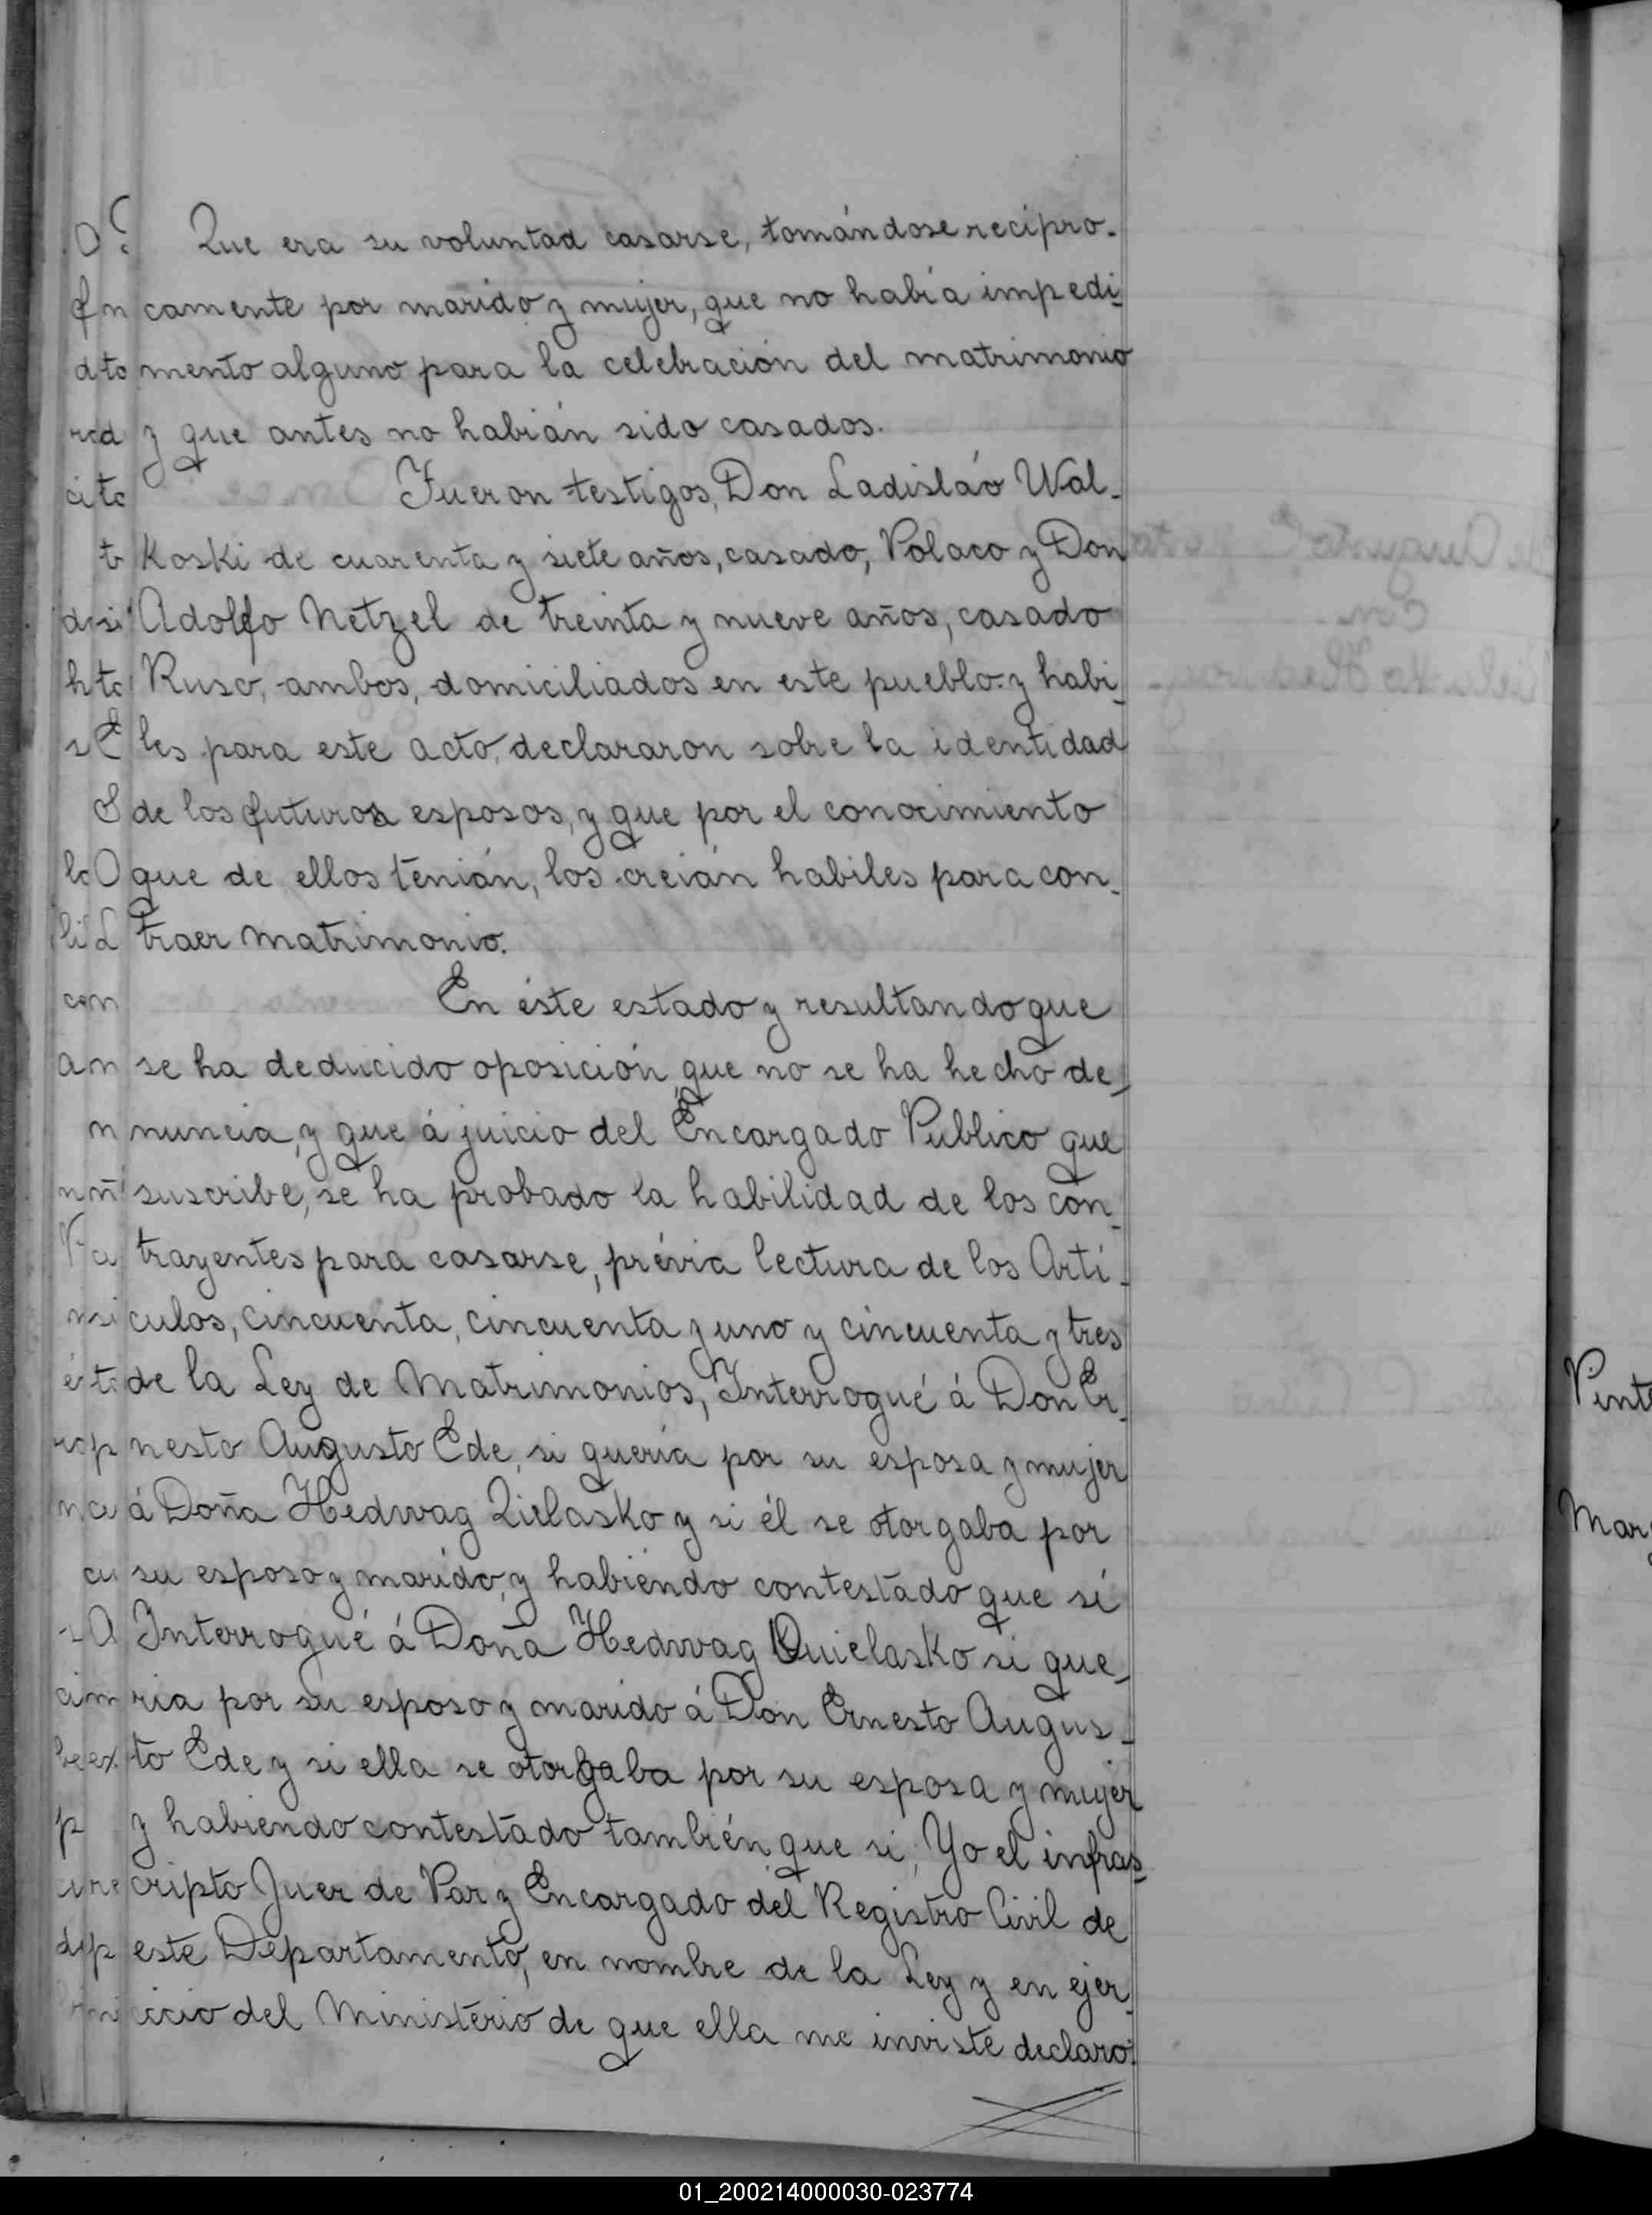 Que era su voluntad casarse, tomándose recipro-
camente por marido y mujer, que no había impedi-
mento alguno para la celebración del matrimonio
y que antes no habián sido casados.
Fueron testigos, Don Ladisláo Wal-
Koski de cuarenta y siete años, casado, Polaco y Don
Adolfo Netzel de treinta y nueve años, casado
Ruso, ambos, domiciliados en este pueblo y habi-
les para este acto, declararon sobre la identidad
de los futuros esposos, y que por el conocimiento
que de ellos tenián, los creián habiles para con-
traer matrimonio.
En éste estado y resultando que
se ha deducido oposición, que no se ha hecho de-
nuncia, y que á juicio del Encargado Publico que
suscribe, se ha probado la habilidad de los con-
trayentes para casarse, prévia lectura de los Artí-
culos, cincuenta, cincuenta y uno y cincuenta y tres
de la Ley de Matrimonios, Interrogué á Don Er-
nesto Augusto Ede, si quería por su esposa y mujer
á Doña Hedwag Qielasko y si él se otorgaba por
su esposo y marido, y habiendo contestado que sí
Interrogué á Doña Hedwag Quielasko si que-
ria por su esposo y marido á Don Ernesto Augus-
to Ede y si ella se otorgaba por su esposa y mujer
y habiendo contestado también que si, Yo el infras-
cripto Juez de Paz y Encargado del Registro Civil de
este Departamento, en nombre de la Ley y en ejer-
cicio del Ministerio de que ella me inviste declaro:
01_200214000030-023774